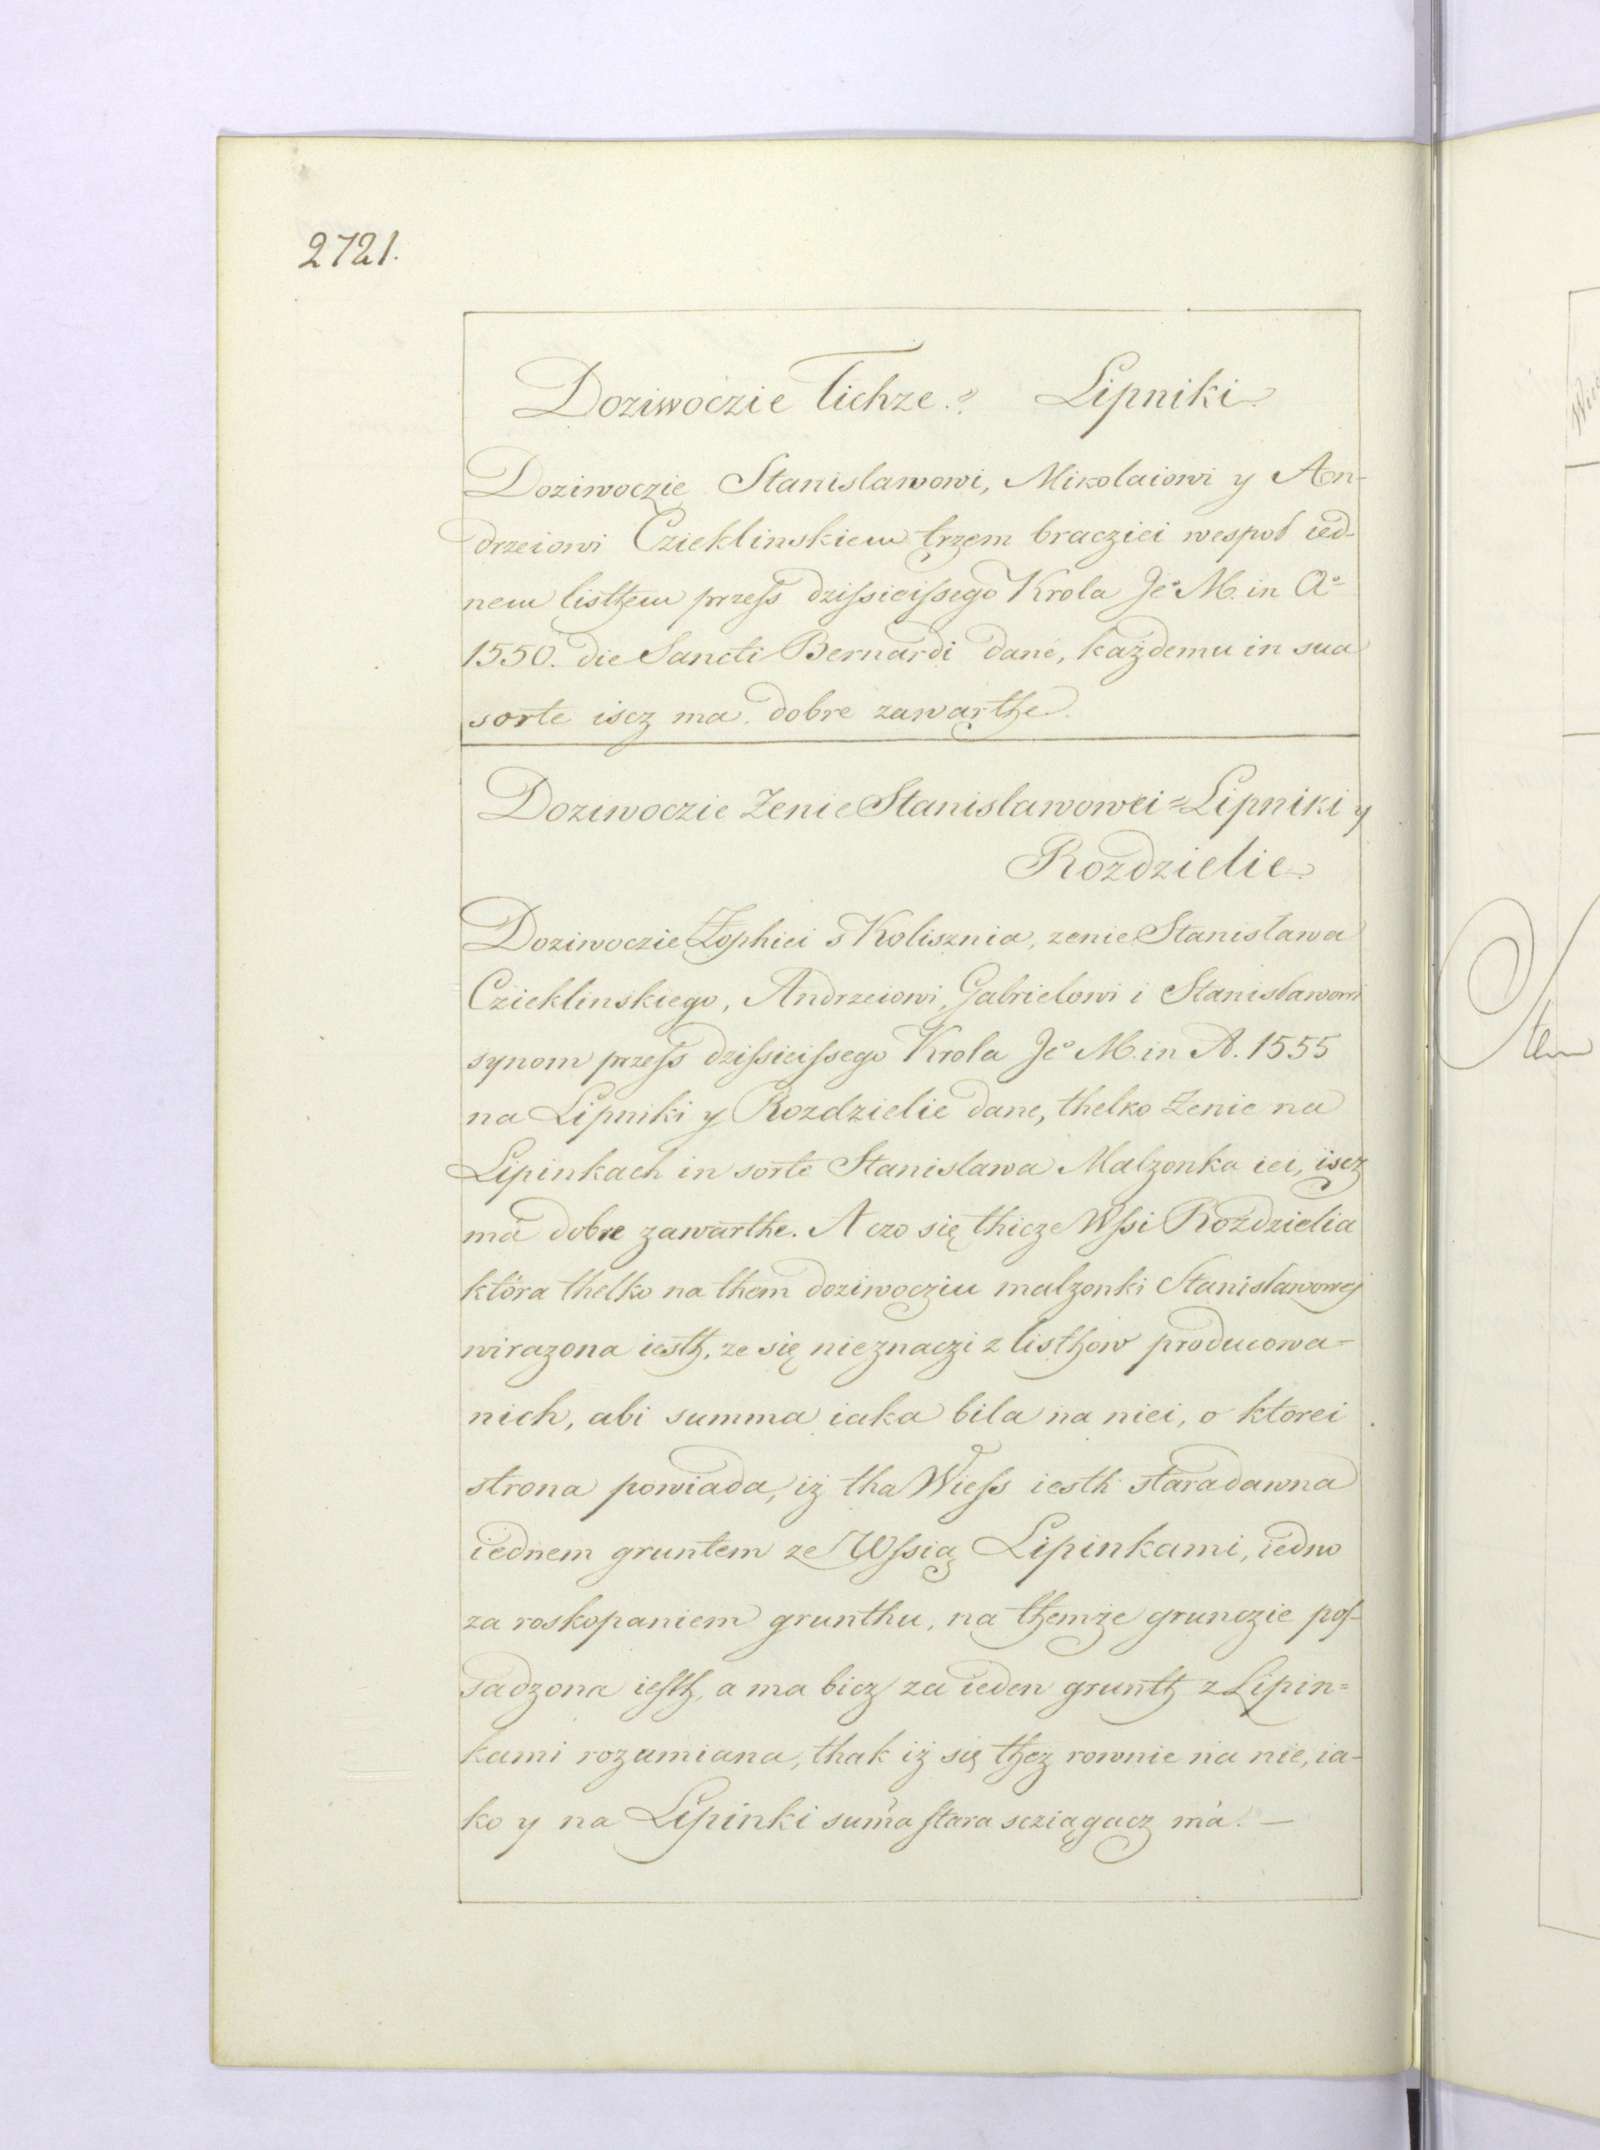 2721.
Doziwoczie Tichze. Lipniki
Doziwoczie Stanislawowi, Mikolaiowi y An-
drzeiowi Czieklinskiem trzem bracziei wespoł ied-
nem listhem przeſs dziſsieiſsego Krola Je° M. in A°
1550. die Sancti Bernardi dané, każdemu in sua
sorte iscz ma dobre zawarthe.
Doziwoczie Zenie Stanislawowei = Lipniki y
Rozdzielie
Doziwoczie Zophiei s Kolisznia, zenie Stanisława
Czieklinskiego, Andrzeiowi, Gabrielowi i Stanisławowi
synom przeſs dziſsieiſsego Krola Je° M. in A. 1555
na Lipniki y Rozdzielie dane, thelko Zenie na
Lipinkach in sorte Stanislawa Malzonka iei, iscz
má dobre zawarthe. A czo się thicze Wſsi Rozdzielia
która thelko na them doziwocziu malzonki Stanisławowej
wirazona iesth, ze się nieznaczi z listhow producowa-
nich, abi summa iaka bila na niei, o ktorei
strona powiada, iż tha Wieſs iesth staradawna
iednem gruntem ze Wſsią Lipinkami, iedno
za roskopaniem grunthu, na themże grunczie poſ-
sadzona ieſth, a ma bicz za ieden grunth z Lipin=
kami rozumiana, thak iż się thez rownie na nie, ia-
ko y na Lipinki suma ſtara scziągacz má. —